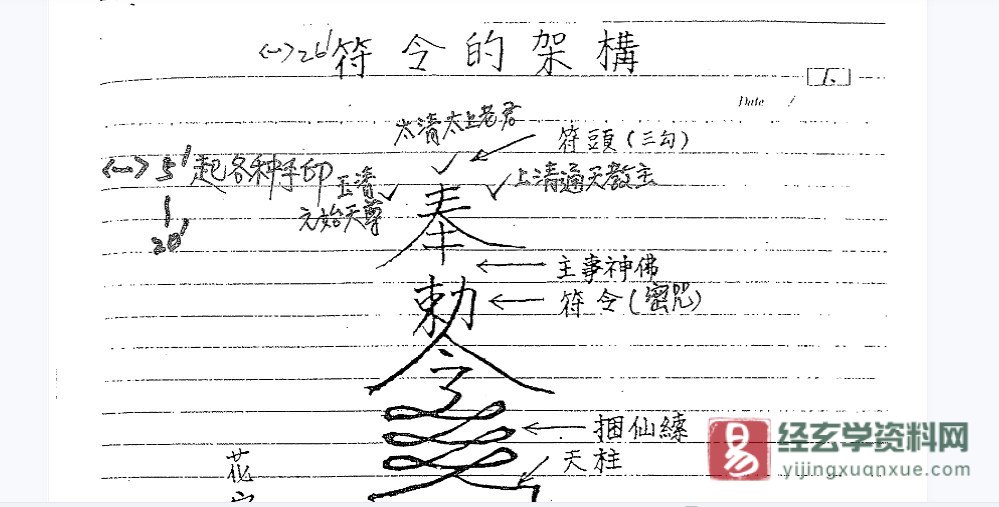 <一>26' 符令的架構
1.
Date /
太清太上老君
符頭(三勾)
<一>5' 起各种手印
20'
玉清
元始天尊
上清通天教主
奉
主事神佛
勅
符令(密咒)
令
捆仙練
天柱
花
经玄学资料网
yijingxuanxue.com
易